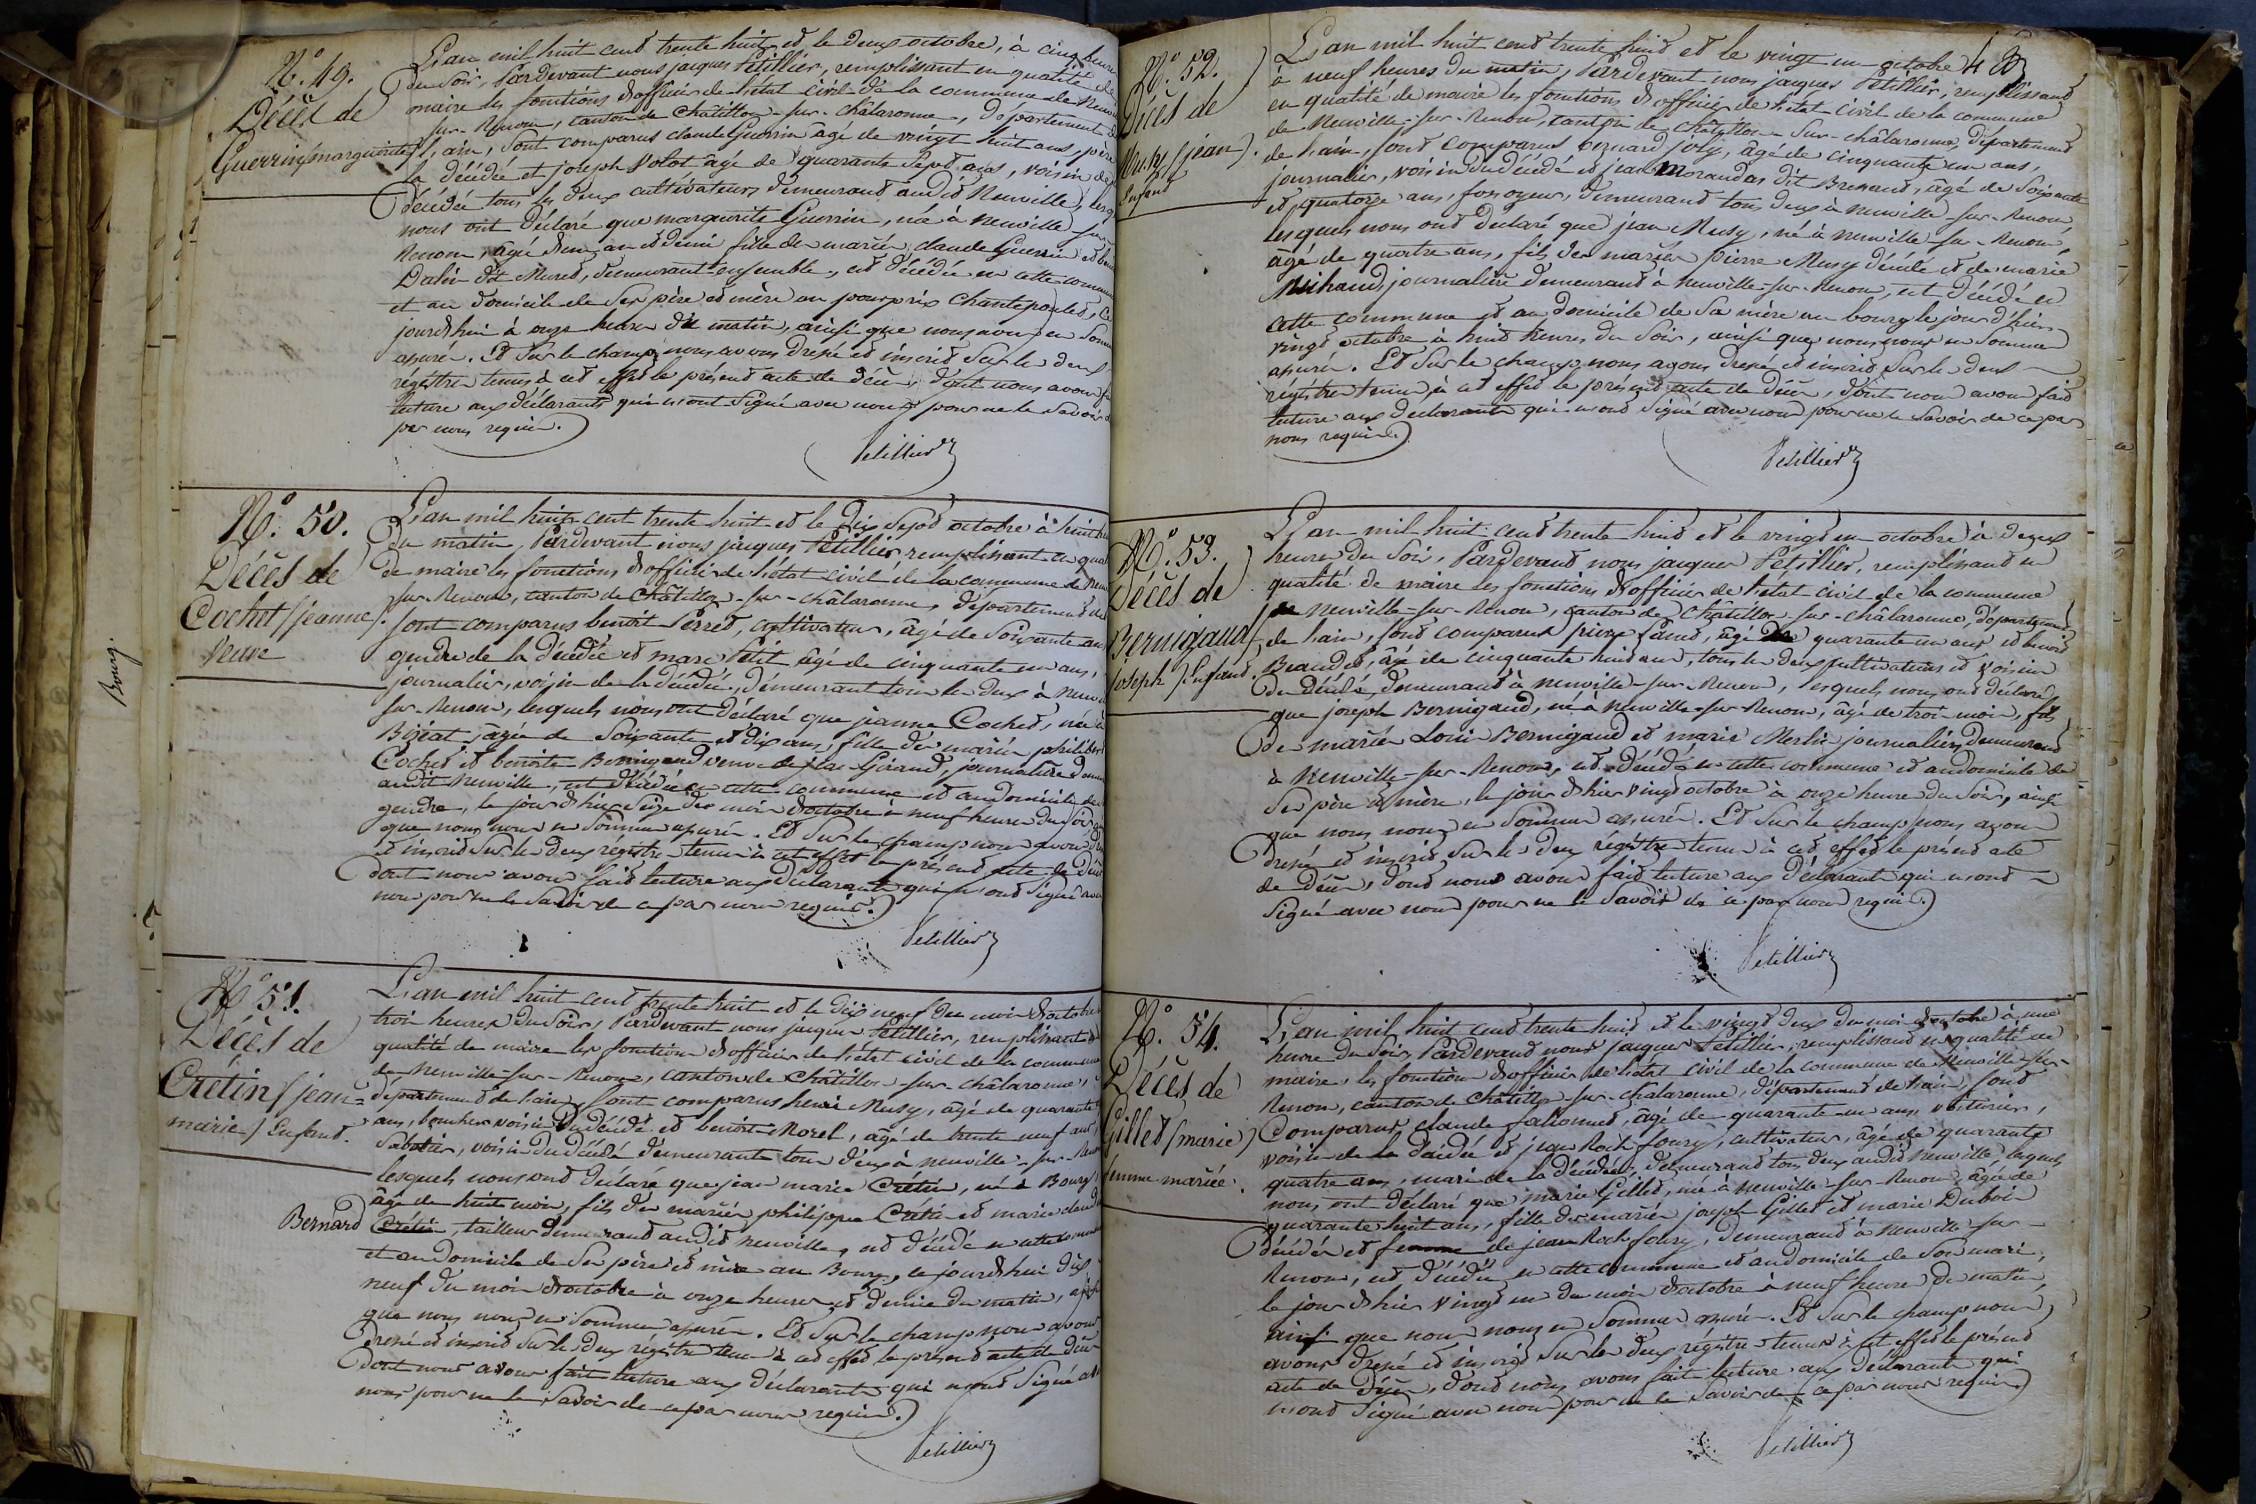 N.º 49.
Décès de
Guerrin (marguerite)
L'an mil huit cent trente huit et le deux octobre, à cinq heures
du soir, Pardevant nous jacques Petillier, remplissant en qualité de
maire les fonctions d'officier de l'état civil de la commune de Neuville
sur-Renom, canton de Chatillon-sur-châlaronne, département de
l'ain, sont comparus claude Guerrin âgé de vingt huit ans, père de
la décédée et joseph Volot âgé de quarante sept ans, voisin de la
décédée tous les deux cultivateurs demeurant audit Neuville, lesquels
nous ont déclaré que marguerite Guerrin, née à Neuville-sur-
Renom, âgée d'un an et demi fille des mariés claude Guerrin et
dit Muret, demeurant ensemble, est décédée en cette commune
et au domicile de ses père et mère au pourprix Chantepoulet, ce
jourd'hui à onze heures du matin, ainsi que nous nous en sommes
assurés. Et sur le champ nous avons dressé et inscrit sur les deux
régistres tenus à cet effet le présent acte de décès, dont nous avons fait
lecture aux déclarants qui n'ont signé avec nous pour ne le savoir de ce
par nous requis.
Petillier
N.º 50.
Décès de
Cochet (jeanne)
Veuve
L'an mil huit cent trente huit et le dix sept octobre à huit heures
du matin, Pardevant nous jacques Petillier, remplissant en qualité
de maire les fonctions d'officier de l'état civil de la commune de Neuville
sur-Renom, canton de Châtillon-sur-châlaronne, département de l'ain
sont comparus benoît Perret, cultivateur, âgé de soixante ans
gendre de la décédée et marc Petit âgé de cinquante un ans,
journalier, voisin de la décédée, demeurant tous les deux à Neuville
sur-Renom, lesquels nous ont déclaré que jeanne Cochet, née à
Biziat, âgée de soixante et dix ans, fille des mariés philibert
Cochet et benoite Bernigaud veuve de Giraud, journalière demeurant
audit Neuville, est décédée en cette commune et au domicile de son
gendre, le jour d'hier seize du mois d'octobre à neuf heures du soir, ainsi
que nous nous en sommes assurés. Et sur le champ nous avons dressé
et inscrit sur les deux régistres tenus à cet effet le présent acte de décès
dont nous avons fait lecture aux déclarants qui n'ont signé avec
nous pour ne le savoir de ce par nous requis.
Petillier
N.º 51.
Décès de
Crétin (jean-
marie) Enfant.
L'an mil huit cent trente huit et le dix neuf du mois d'octobre à
trois heures du soir, Pardevant nous jacques Petillier, remplissant en
qualité de maire les fonctions d'officier de l'état civil de la commune
de Neuville-sur-Renom, canton de Châtillon-sur-châlaronne,
département de l'ain, sont comparus henri Musy, âgé de quarante
ans, boucher voisin du décédé et benoît Morel, âgé de trente neuf ans,
sabotier, voisin du décédé demeurants tous deux à Neuville-sur-Renom
lesquels nous ont déclaré que jean marie Crétin, né à Bourg,
âgé de huit mois, fils des mariés philippe Crétin et marie claudine
Bernard Crétin, tailleur demeurant audit neuville, est décédé en cette commune
et au domicile de ses père et mère au Bourg, ce jourd'hui dix
neuf du mois d'octobre à onze heures et demie du matin, ainsi
que nous nous en sommes assurés. Et sur le champ nous avons
dressé et inscrit sur les deux régistres tenus à cet effet le présent acte de décès
dont nous avons fait lecture aux déclarants qui n'ont signé avec
nous pour ne le savoir de ce par nous requis.
Petillier
Bourg.
N.º 52.
Décès de
Musy (jean).
Enfant
L'an mil huit cent trente huit et le vingt un octobre
à neuf heures du matin, Pardevant nous jacques Petillier, remplissant
en qualité de maire les fonctions d'officier de l'état civil de la commune
de Neuville-sur-Renom, canton de Châtillon-sur-châlaronne, département
de l'ain, sont comparus bernard joly, âgé de cinquante un ans,
journalier, voisin du décédé et jean Morandas dit Brenand, âgé de soixante
et quatorze ans, fossoyeur, demeurant tous deux à Neuville-sur-Renom,
lesquels nous ont déclaré que jean Musy, né à Neuville-sur-Renom,
âgé de quatre ans, fils des mariés pierre Musy décédé et de marie
Michaud, journalière demeurant à Neuville-sur-Renom, est décédé en
cette commune et au domicile de sa mère au bourg le jour d'hier
vingt octobre à huit heures du soir, ainsi que nous nous en sommes
assurés. Et sur le champ nous avons dressé et inscrit sur les deux
régistres tenus à cet effet le présent acte de décès, dont nous avons fait
lecture aux déclarants qui n'ont signé avec nous pour ne le savoir de ce par
nous requis.
Petillier
N.º 53.
Décès de
Bernigaud
joseph (Enfant.
L'an mil huit cent trente huit et le vingt un octobre à deux
heures du soir, Pardevant nous jacques Petillier, remplissant en
qualité de maire les fonctions d'officier de l'état civil de la commune
de Neuville-sur-Renom, canton de Châtillon-sur-châlaronne, département
de l'ain, sont comparus pierre âgé de quarante un ans et benoit
âgé de cinquante huit ans, tous les deux cultivateurs et voisins
du décédé, demeurant à Neuville-sur-Renom, lesquels nous ont déclaré
que joseph Bernigaud, né à Neuville-sur-Renom, âgé de trois mois, fils
de mariés Louis Bernigaud et marie Merlin journaliers demeurant
à Neuville-sur-Renom, est décédé en cette commune et au domicile de
ses père et mère, le jour d'hier vingt octobre à onze heures du soir, ainsi
que nous nous en sommes assurés. Et sur le champ nous avons
dressé et inscrit sur les deux régistres tenus à cet effet le présent acte
de décès, dont nous avons fait lecture aux déclarants qui n'ont
signé avec nous pour ne le savoir de ce par nous requis.
Petillier
N.º 54.
Décès de
Gillet (marie)
femme mariée.
L'an mil huit cent trente huit et le vingt deux du mois d'octobre à une
heure du soir, Pardevant nous jacques Petillier, remplissant en qualité de
maire, les fonctions d'officier de l'état civil de la commune de Neuville-sur-
Renom, canton de Châtillon-sur-châlaronne, département de l'ain, sont
Comparus claude falconnet, âgé de quarante un ans, voiturier,
voisin de la décédée et jean Roch foury, cultivateur, âgé de quarante
quatre ans, mari de la décédée, demeurant tous deux audit Neuville lesquels
nous ont déclaré que marie Gillet, née à Neuville-sur-Renom, âgée de
quarante huit ans, fille des mariés joseph Gillet et marie Dubois
décédés et femme de jean Roch foury, demeurant à Neuville-sur-
Renom, est décédée en cette commune et au domicile de son mari,
le jour d'hier vingt un du mois d'octobre à neuf heures du matin,
ainsi que nous nous en sommes assurés. Et sur le champ nous
avons dressé et inscrit sur les deux régistres tenus à cet effet le présent
acte de décès, dont nous avons fait lecture aux déclarants qui
n'ont signé avec nous pour ne le savoir de ce par nous requis.
Petillier